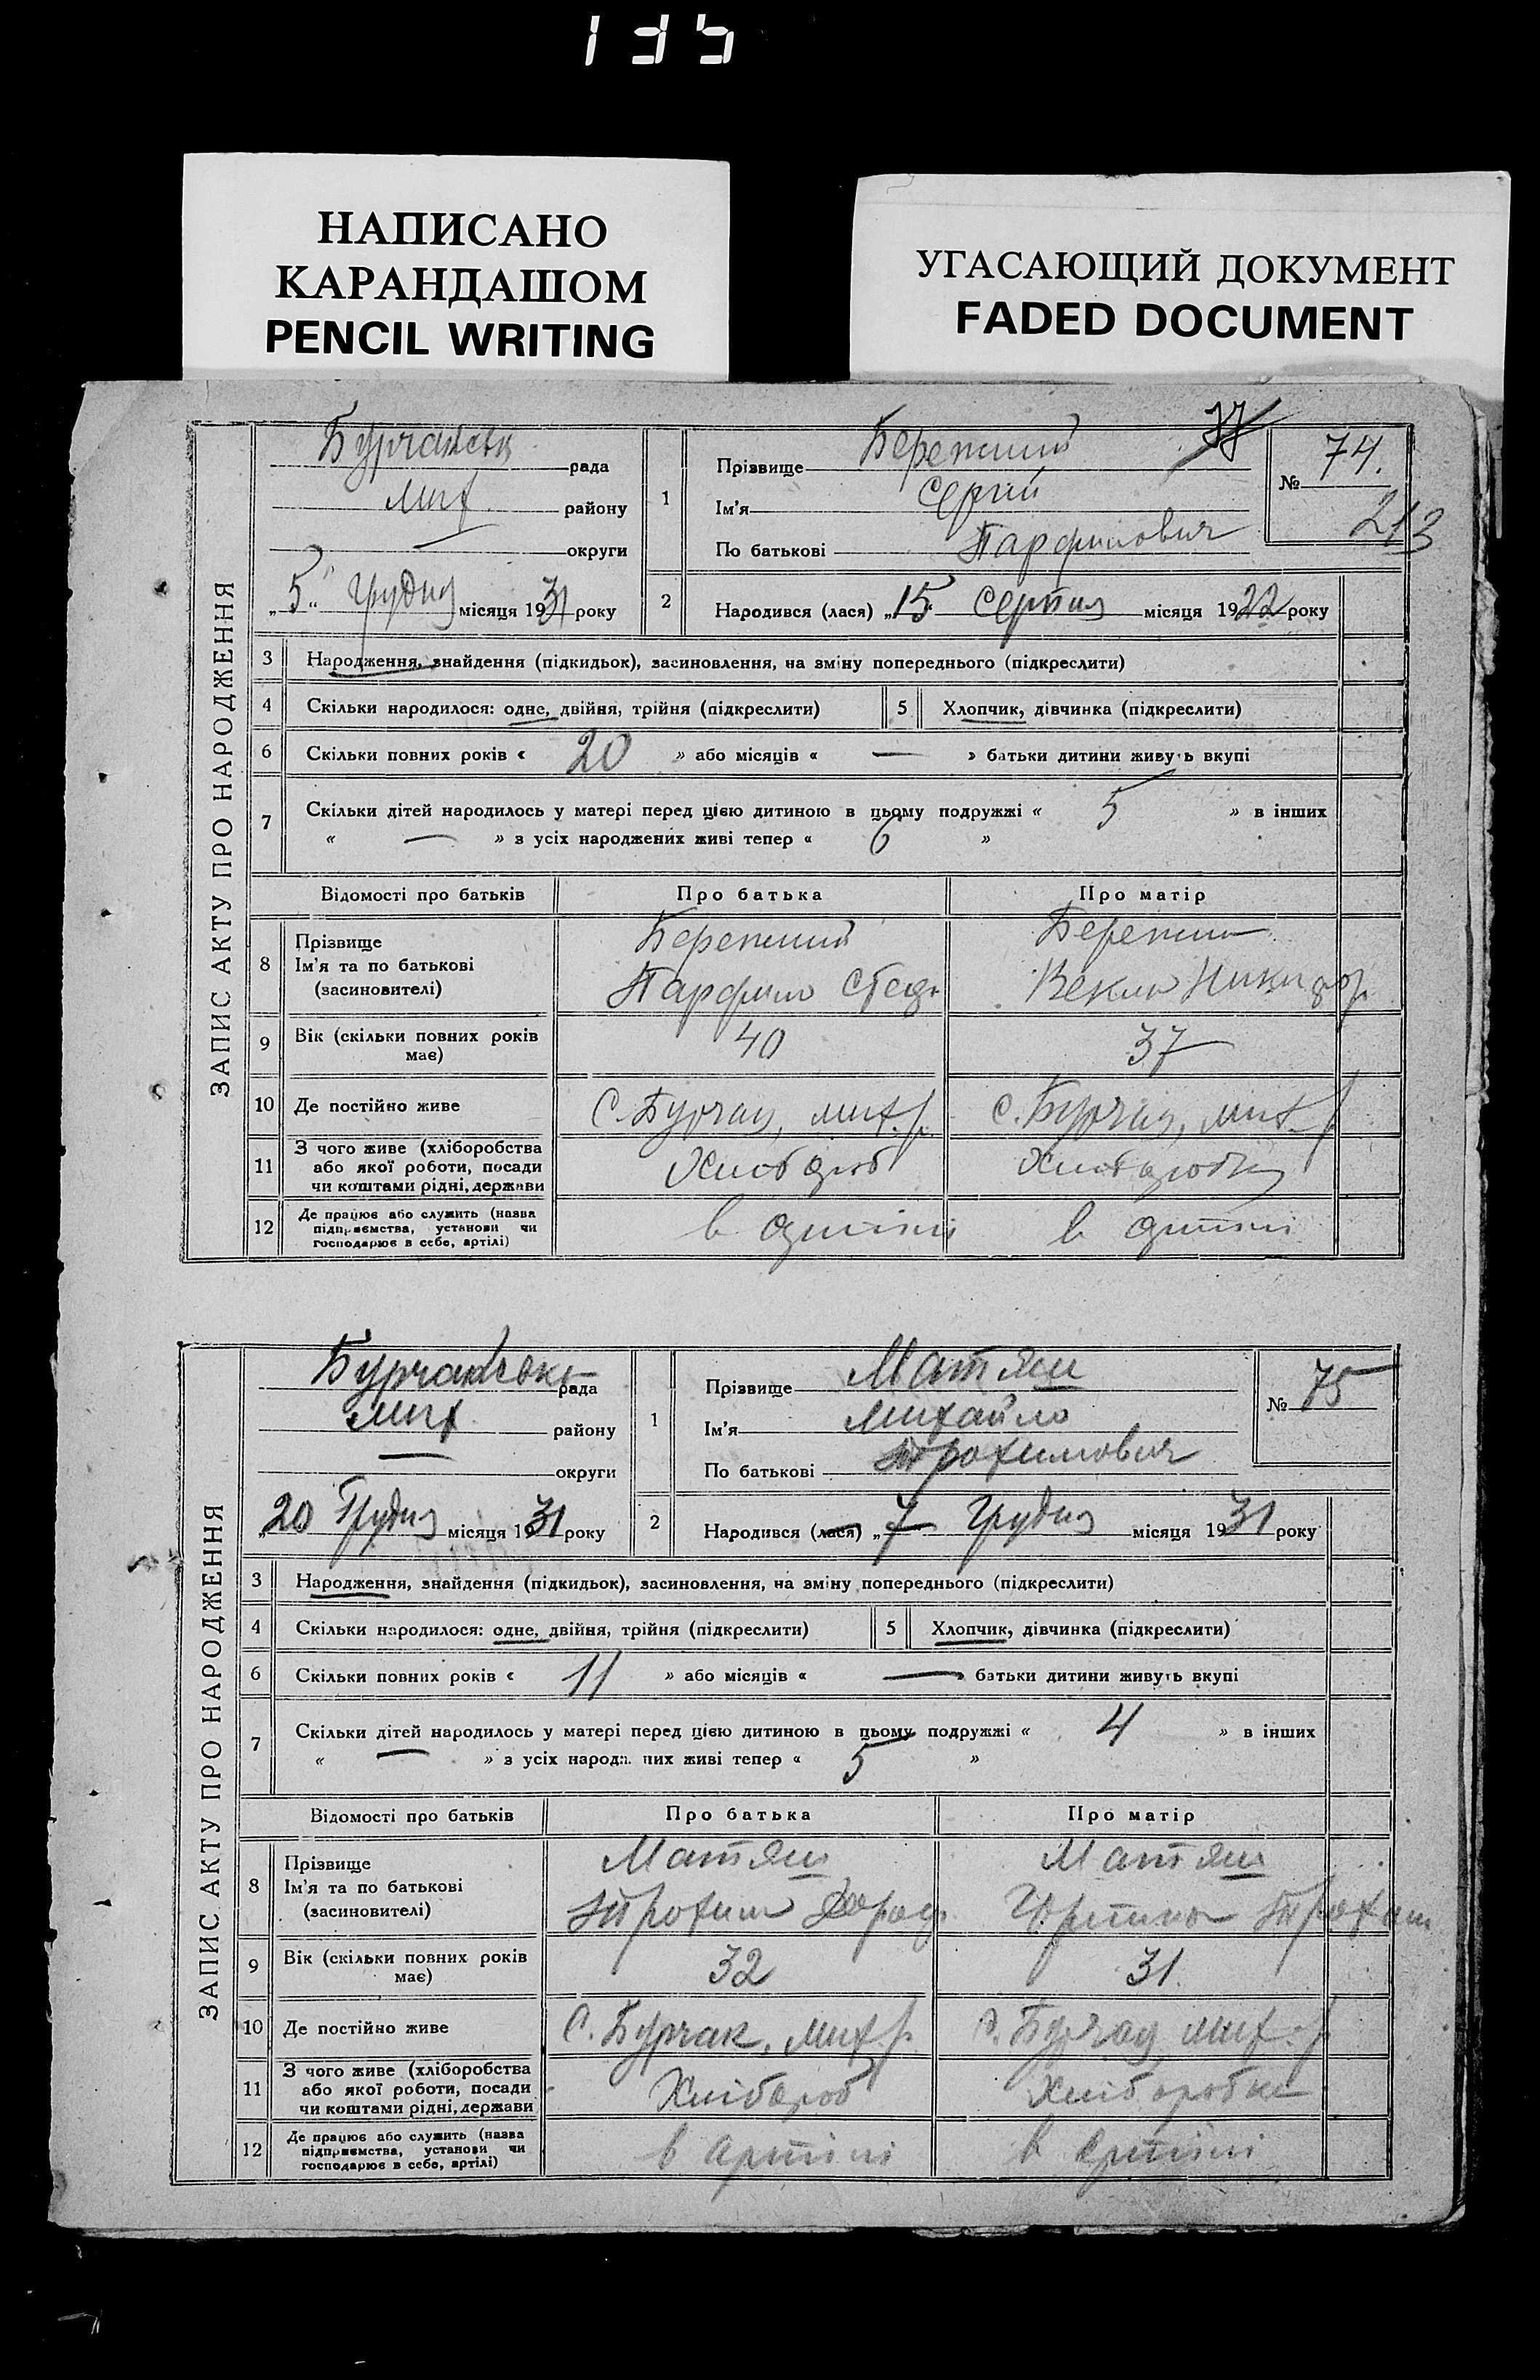 135
НАПИСАНО
КАРАНДАШОМ
PENCIL WRITING
УГАСАЮЩИЙ ДОКУМЕНТ
FADED DOCUMENT
ЗАПИС АКТУ ПРО НАРОДЖЕННЯ
Бурчанськ рада
мих. району
— округи
„5“ Грудня місяця 1931 року
1
Прізвище Бережний
Ім'я Сергій
По батькові Парфилович
№ 74.
213
2 Народився (лася) „15“ Серпня місяця 1922 року
3 Народження, знайдення (підкидьок), засиновлення, на зміну попереднього (підкреслити)
4 Скільки народилося: одне, двійня, трійня (підкреслити) 5 Хлопчик, дівчинка (підкреслити)
6 Скільки повних років « 20 » або місяців « — » батьки дитини живуть вкупі
7 Скільки дітей народилось у матері перед цією дитиною в цьому подружжі « 5 » в інших
« — » з усіх народжених живі тепер « 6 »
Відомості про батьків Про батька Про матір
8 Прізвище
Ім'я та по батькові
(засиновителі)
Бережний
Парфило
Бережна
9 Вік (скільки повних років
має)
40 37
10 Де постійно живе С. Бурчак, мих. р. с. Бурчак, мих. р.
11 З чого живе (хліборобства
або якої роботи, посади
чи коштами рідні, держави
Хлібороб Хліборобка
12 Де працює або служить (назва
підприємства, установи чи
господарює в себе, артілі)
в артілі в артілі
ЗАПИС АКТУ ПРО НАРОДЖЕННЯ
рада
мих району
— округи
20 Грудня місяця 1931 року
1
Прізвище Матяш
Ім'я Михайло
По батькові Трохимович
№ 75
2 Народився (лася) „7 Грудня місяця 1931 року
3 Народження, знайдення (підкидьок), засиновлення, на зміну попереднього (підкреслити)
4 Скільки народилося: одне, двійня, трійня (підкреслити) 5 Хлопчик, дівчинка (підкреслити)
6 Скільки повних років « 11 » або місяців « — » батьки дитини живуть вкупі
7 Скільки дітей народилось у матері перед цією дитиною в цьому подружжі « 4 » в інших
« — » з усіх народж. них живі тепер « 5 »
Відомості про батьків Про батька Про матір
8 Прізвище
Ім'я та по батькові
(засиновителі)
Матяш
Трохим
Матяш
Трохим
9 Вік (скільки повних років
має)
32 31
10 Де постійно живе С. Бурчак, мих. р. с. Бурчак, мих. р.
11 З чого живе (хліборобства
або якої роботи, посади
чи коштами рідні, держави
Хлібороб Хліборобка
12 Де працює або служить (назва
підприємства, установи чи
господарює в себе, артілі)
в артілі в артілі